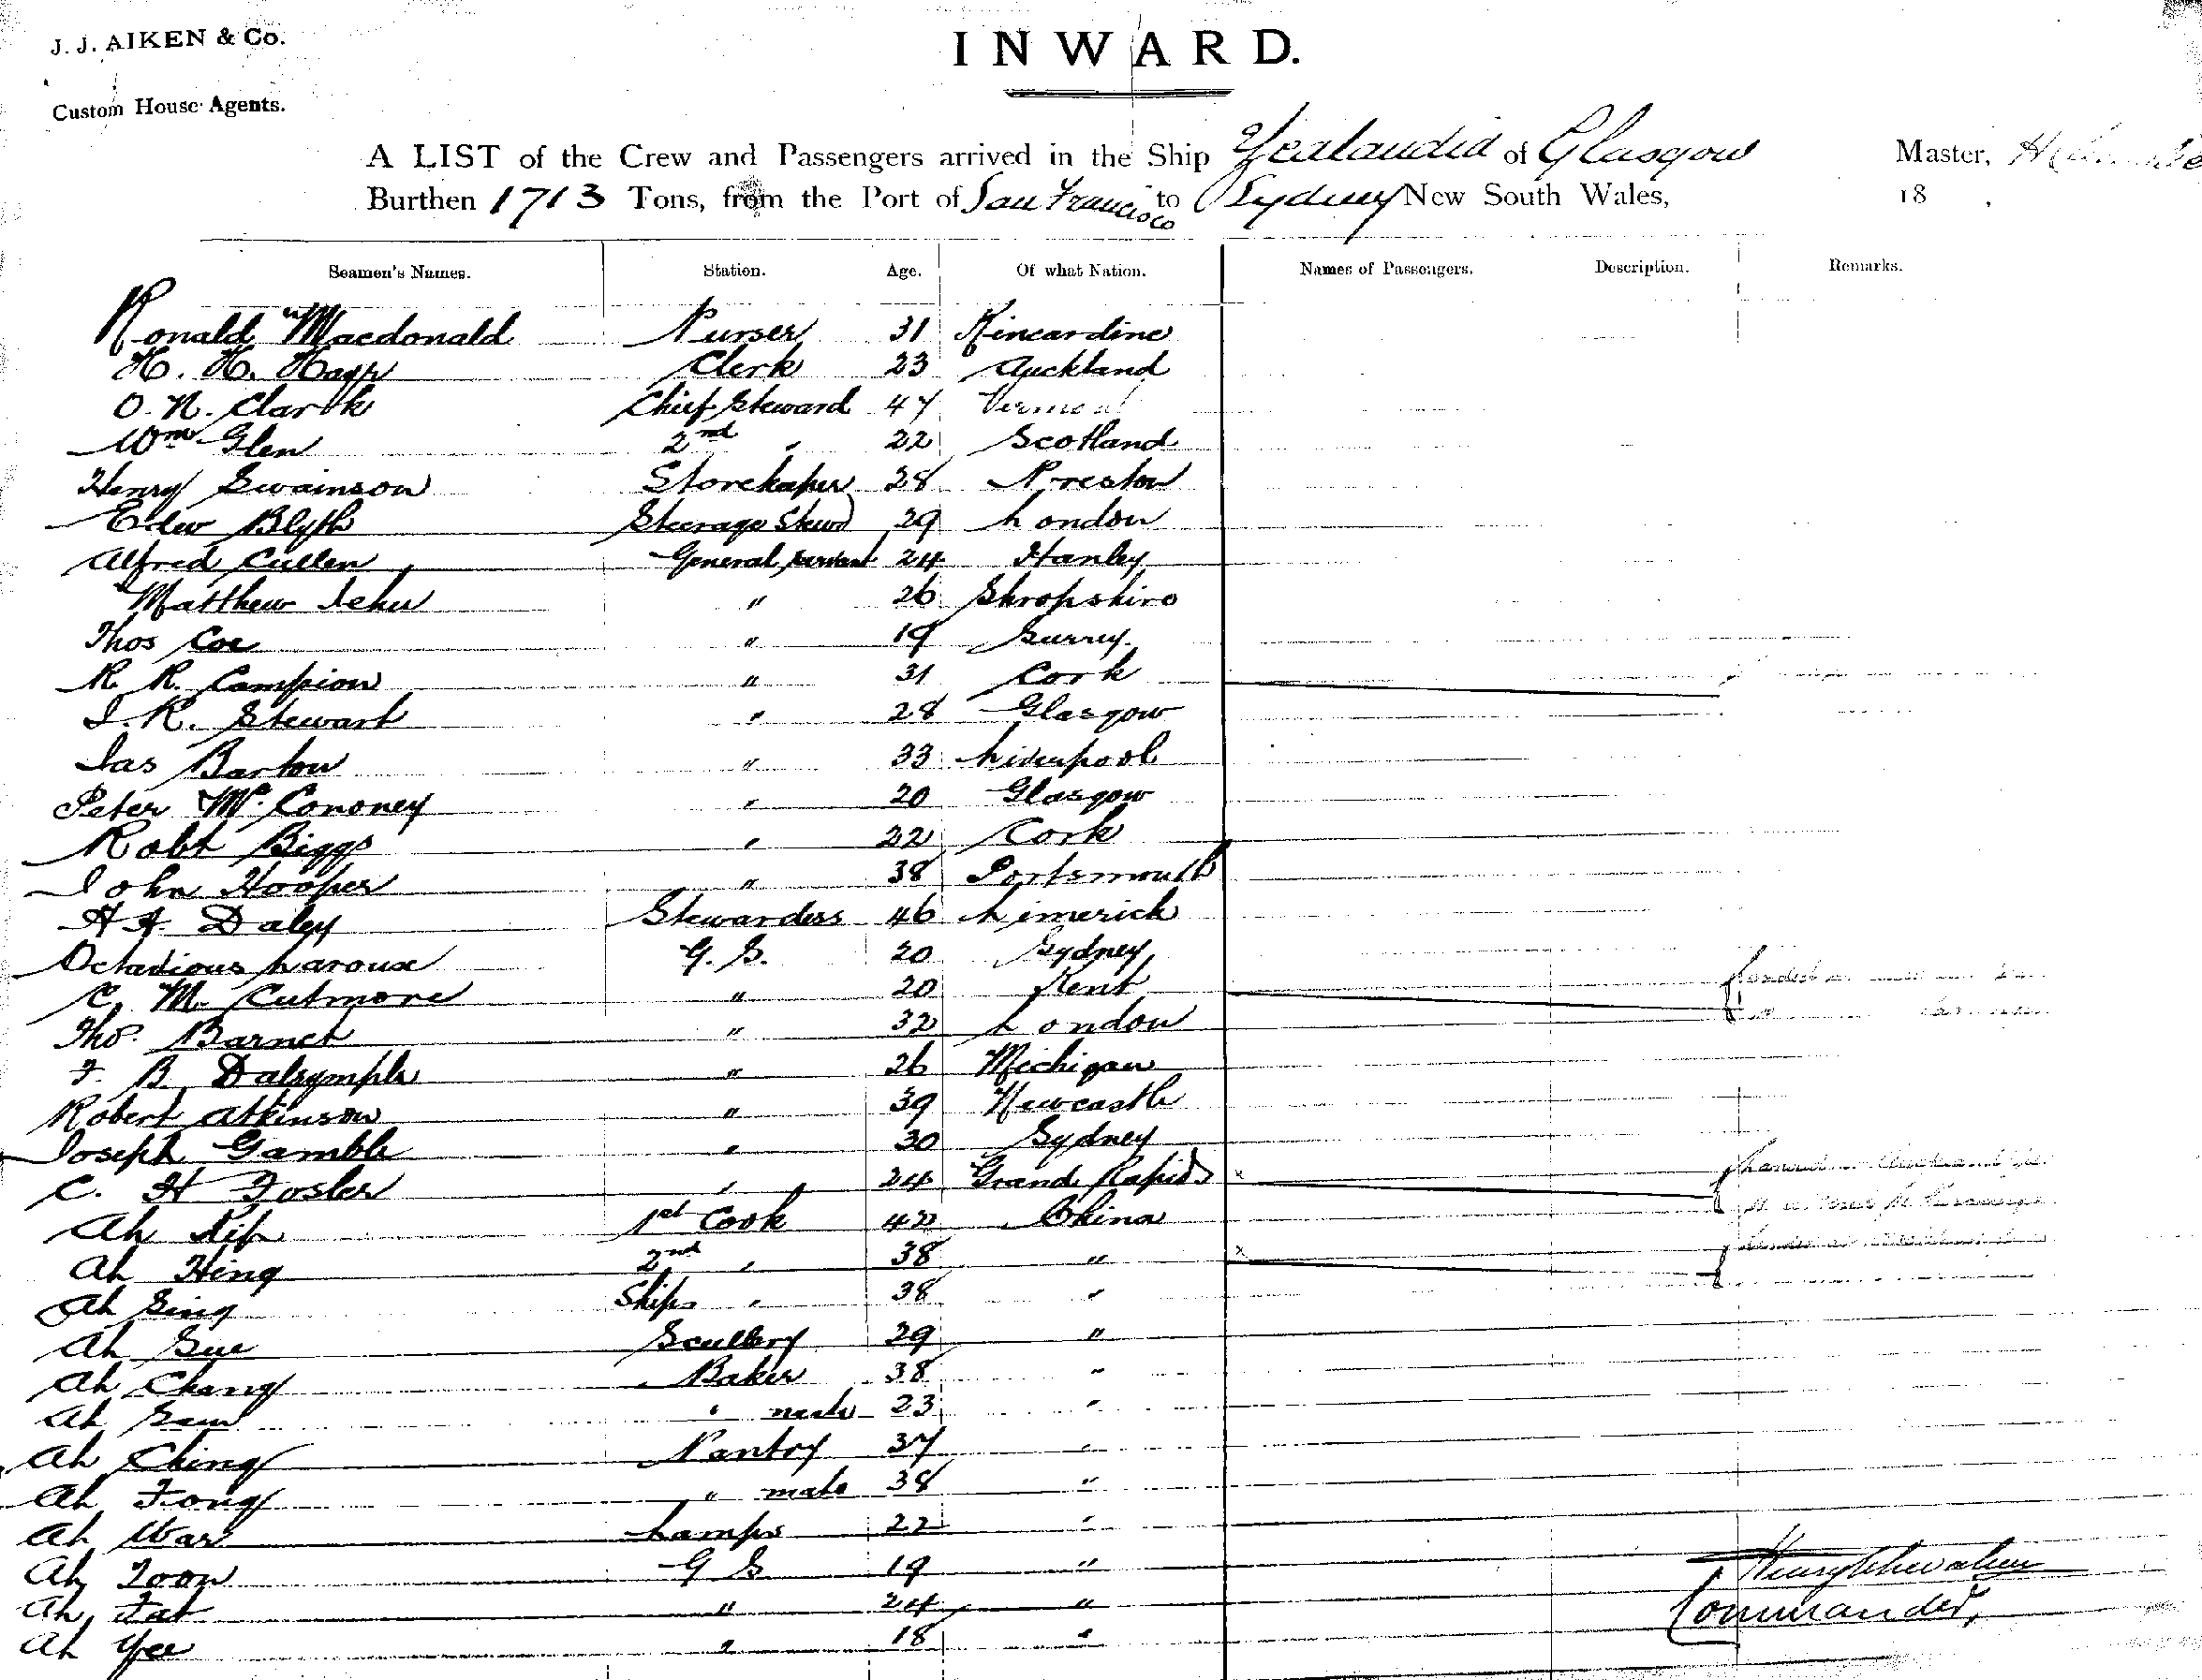 J. J. AIKEN & Co.
INWARD.
Custom House Agents.
A LIST of the Crew and Passengers arrived in the Ship Zealandia of Glasgow Master,
Burthen 1713 Tons, from the Port of San Francisco to Sydney New South Wales, 18 .
Seamen's Names. Station. Age. Of what Nation. Names of Passengers. Description. Remarks.
Ronald Macdonald Purser 31 Kincardine
H. H. Clerk 23 Auckland
O. N. Clark Chief Steward 47 Vermont
Wm Glen 2nd " 22 Scotland
Henry Swainson Storekeeper 28 Preston
Edw Blyth Steerage Stewd 29 London
Alfred Cullen General servant 24 Hanley
Matthew Jehu " 26 Shropshire
Thos Coe " 19 Surrey
R. R. Campion " 31 Cork
J. R. Stewart " 28 Glasgow
Jas Barlow " 33 Liverpool
Peter McCononey " 20 Glasgow
Robt Biggs " 22 Cork
John Hooper " 38 Portsmouth
A A Daley Stewardess 46 Limerick
Octavious Laroux G. S. 20 Sydney
C. M. Cutmore " 20 Kent
Tho. Barnet " 32 London
F. B. Dalrymple " 26 Michigan
Robert Atkinson " 39 Newcastle
Joseph Gamble " 30 Sydney
C. H Foster " 24 Grand Rapids x
Ah 1st Cook 42 China
Ah Hing 2nd " 38 " x
Ah Sing Ships " 38 "
Ah Sue Scullery 29 "
Ah Chang Baker 38 "
Ah Sam " mate 23 "
Ah Ching Pantry 37 "
Ah Fong " mate 38 "
Ah War Lamps 22 "
Ah Toon G S 19 "
Ah Fat " 24 "
Ah Yee " 18 "
Commander,